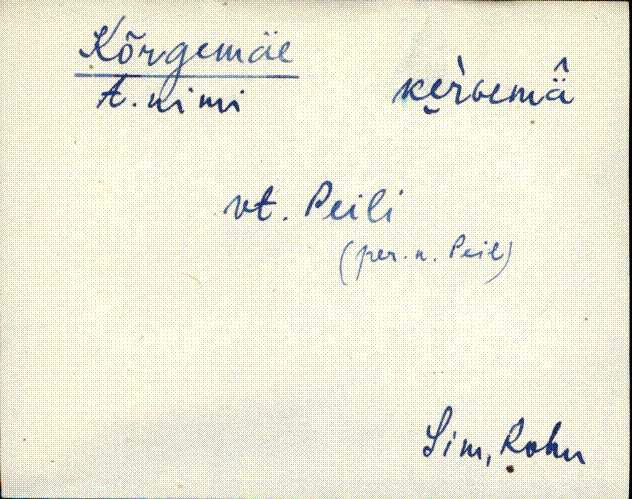 Kõrgemäe
t. nimi
vt. Peili
(per. n. Peil)
Sim, Rohu